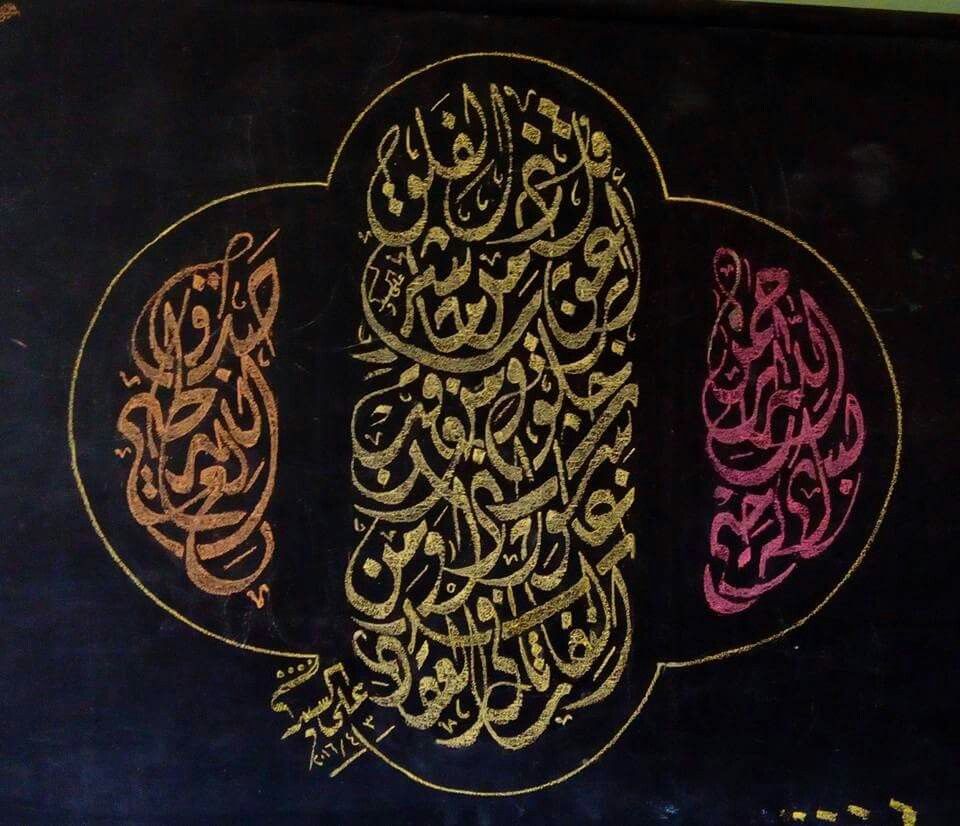 بسم الله الرحمن الرحيم
قل أعوذ برب الفلق
من شر ما خلق
ومن شر غاسق إذا وقب
ومن شر النفاثات في العقد
صدق الله العظيم
علي
٢٠١٦/٤/٣